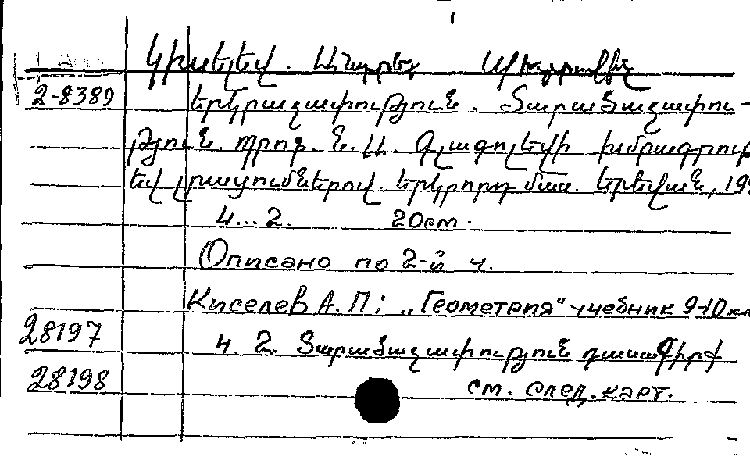 Կիսելեվ. Անդրեյ
2-8389 Երկրաչափություն. Տարածաչափու-
թյուն. պրոֆ. Ն. Ա. Գլագոլեվի խմբագրութ
եվ լրացումներով. Երկրորդ մաս. Երեվան, 19
Ч... 2. 20см.
Описано по 2-й ч.
Киселев А. П: „Геометрия" учебник 9-10 кл
28197 Ч. 2. Տարածաչափություն դասագիրք
28198 см. след. карт.